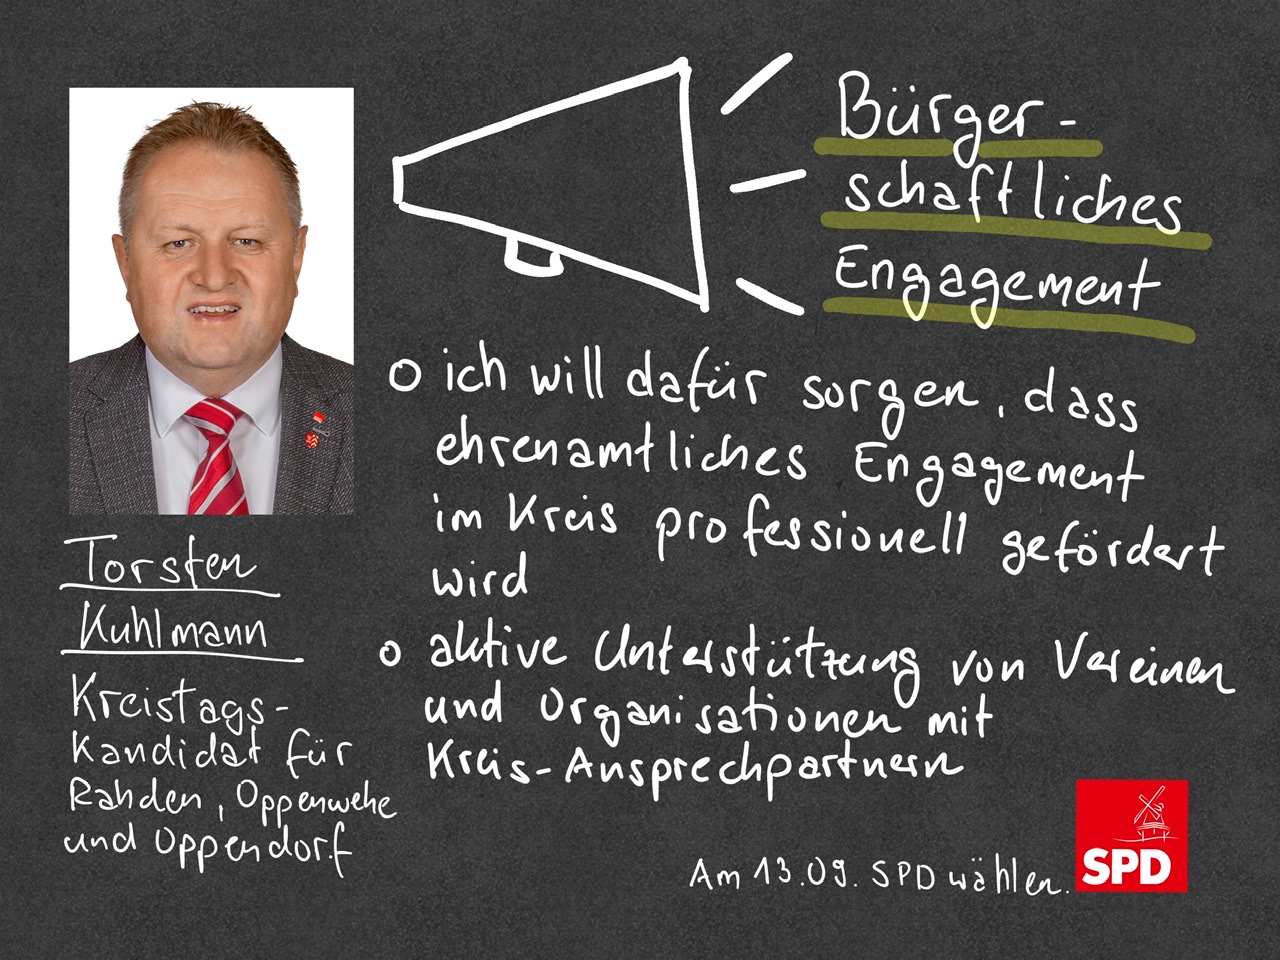 Bürger-
schaftliches
Engagement
o ich will dafür sorgen, dass
ehrenamtliches Engagement
im Kreis professionell gefördert
wird
o aktive Unterstützung von Vereinen
und Organisationen mit
Kreis-Ansprechpartnern
Torsten
Kuhlmann
Kreistags-
Kandidat für
Rahden, Oppenwehe
und Oppendorf
Am 13.09. SPD wählen.
SPD